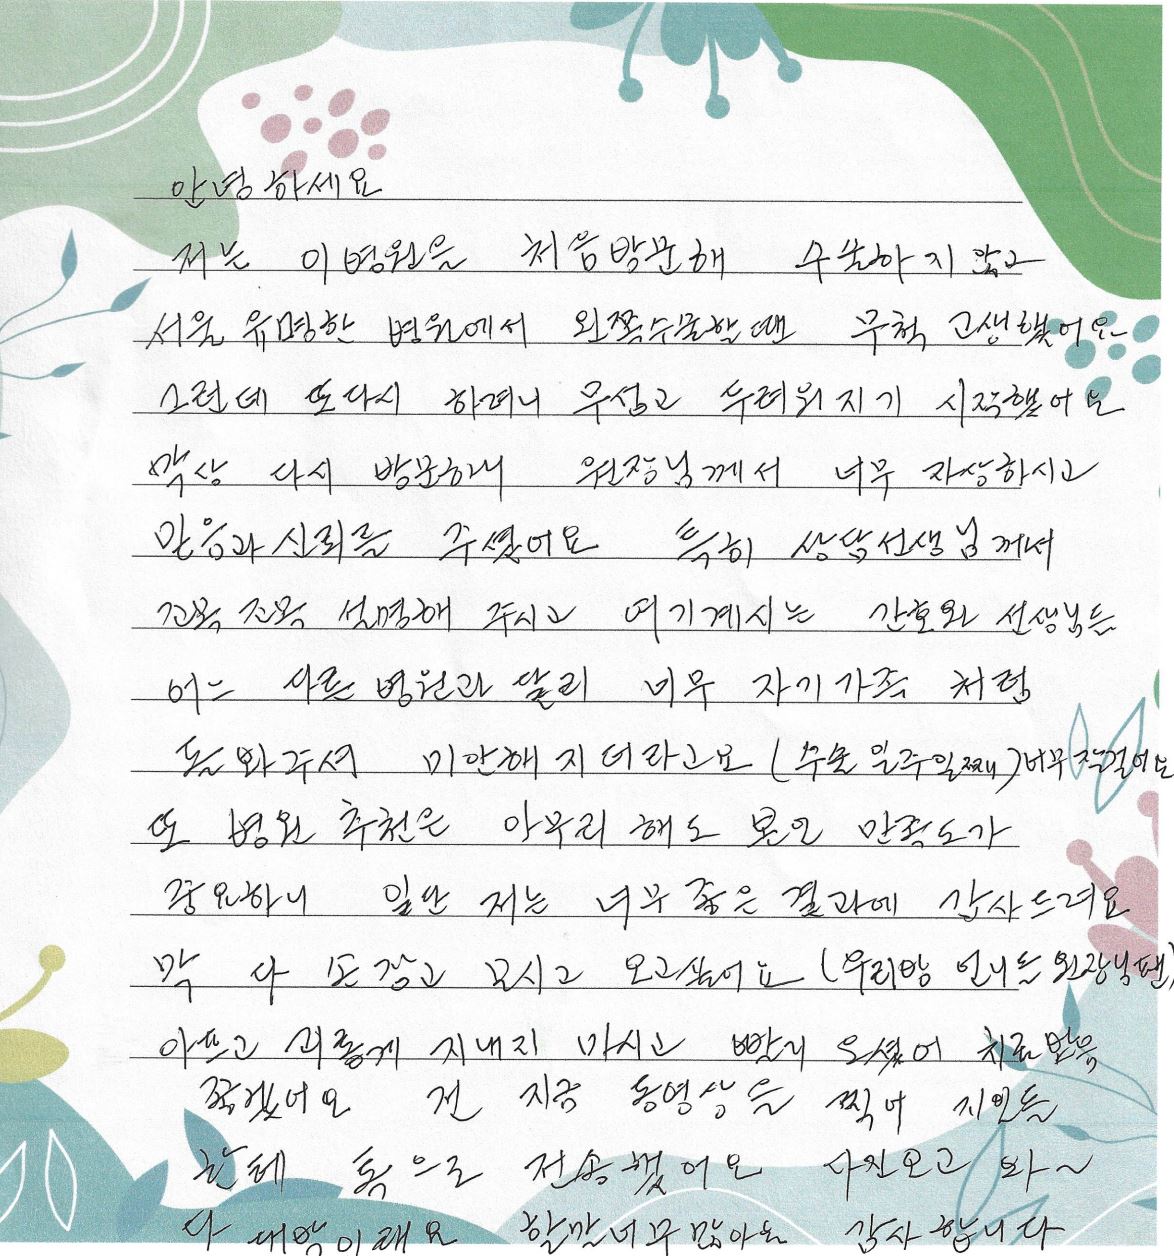 안녕하세요
저는 이병원을 처음방문해 수술하지 않고
서울 유명한 병원에서 왼쪽수술할땐 무척 고생했어요
그런데 또다시 하려니 무섭고 두려워지기 시작했어요
막상 다시 방문하니 원장님께서 너무 자상하시고
믿음과 신뢰를 주셨어요 특히 상담선생님께서
조목조목 설명해 주시고 여기계시는 간호와 선생님들
어느 다른 병원과 달리 너무 자기가족 처럼
돌봐주셔 미안해 지더라고요 (수술 일주일째) 너무 잘걸어요
또 병원 추천은 아무리 해도 본인 만족도가
중요하니 일단 저는 너무 좋은 결과에 감사드려요
막 다 손잡고 모시고 오고싶어요 (우리방 언니들 원장님팬)
아프고 괴롭게 지내지 마시고 빨리 오셨어 치료받음
좋겠어요 전 지금 동영상을 찍어 지인들
한테 톡으로 전송했어요 다친오고 와~
다 대박이래요 할말너무많아요 감사합니다